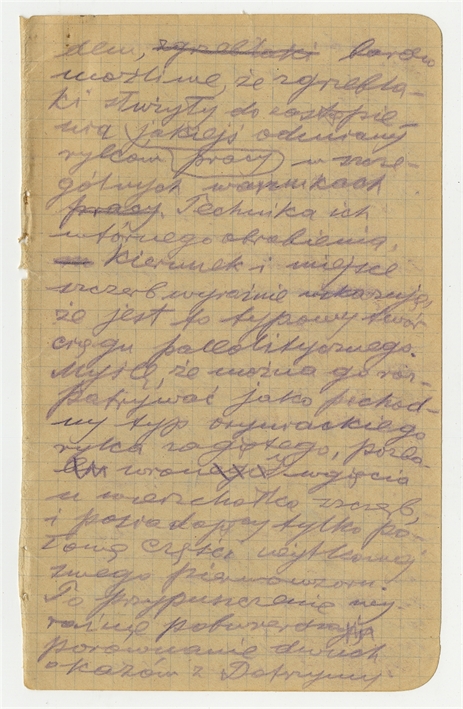 dem, zgrzebłaki bardzo
możliwe, że zgrzebła-
ki służyły do zastąpie-
nia jakiejś odmiany
rylców pracy w szcze-
gólnych warunkach
pracy. Technika ich
wtórnego obrobienia,
kierunek i miejsce
szczerb wyraźnie wskazują,
że jest to typowy twór
ciągu paleolitycznego.
Myślę, że można go roz-
patrywać jako pochod-
ny typ oryniackiego
rylca zagiętego, pozba-
wgięcia
u wierzchołka szczerb,
i posiadający tylko po-
łowę części użytkowej
swego pierwowzoru.
To przypuszczenie wy-
raźnie potwierdza
porównanie dwóch
okazów z